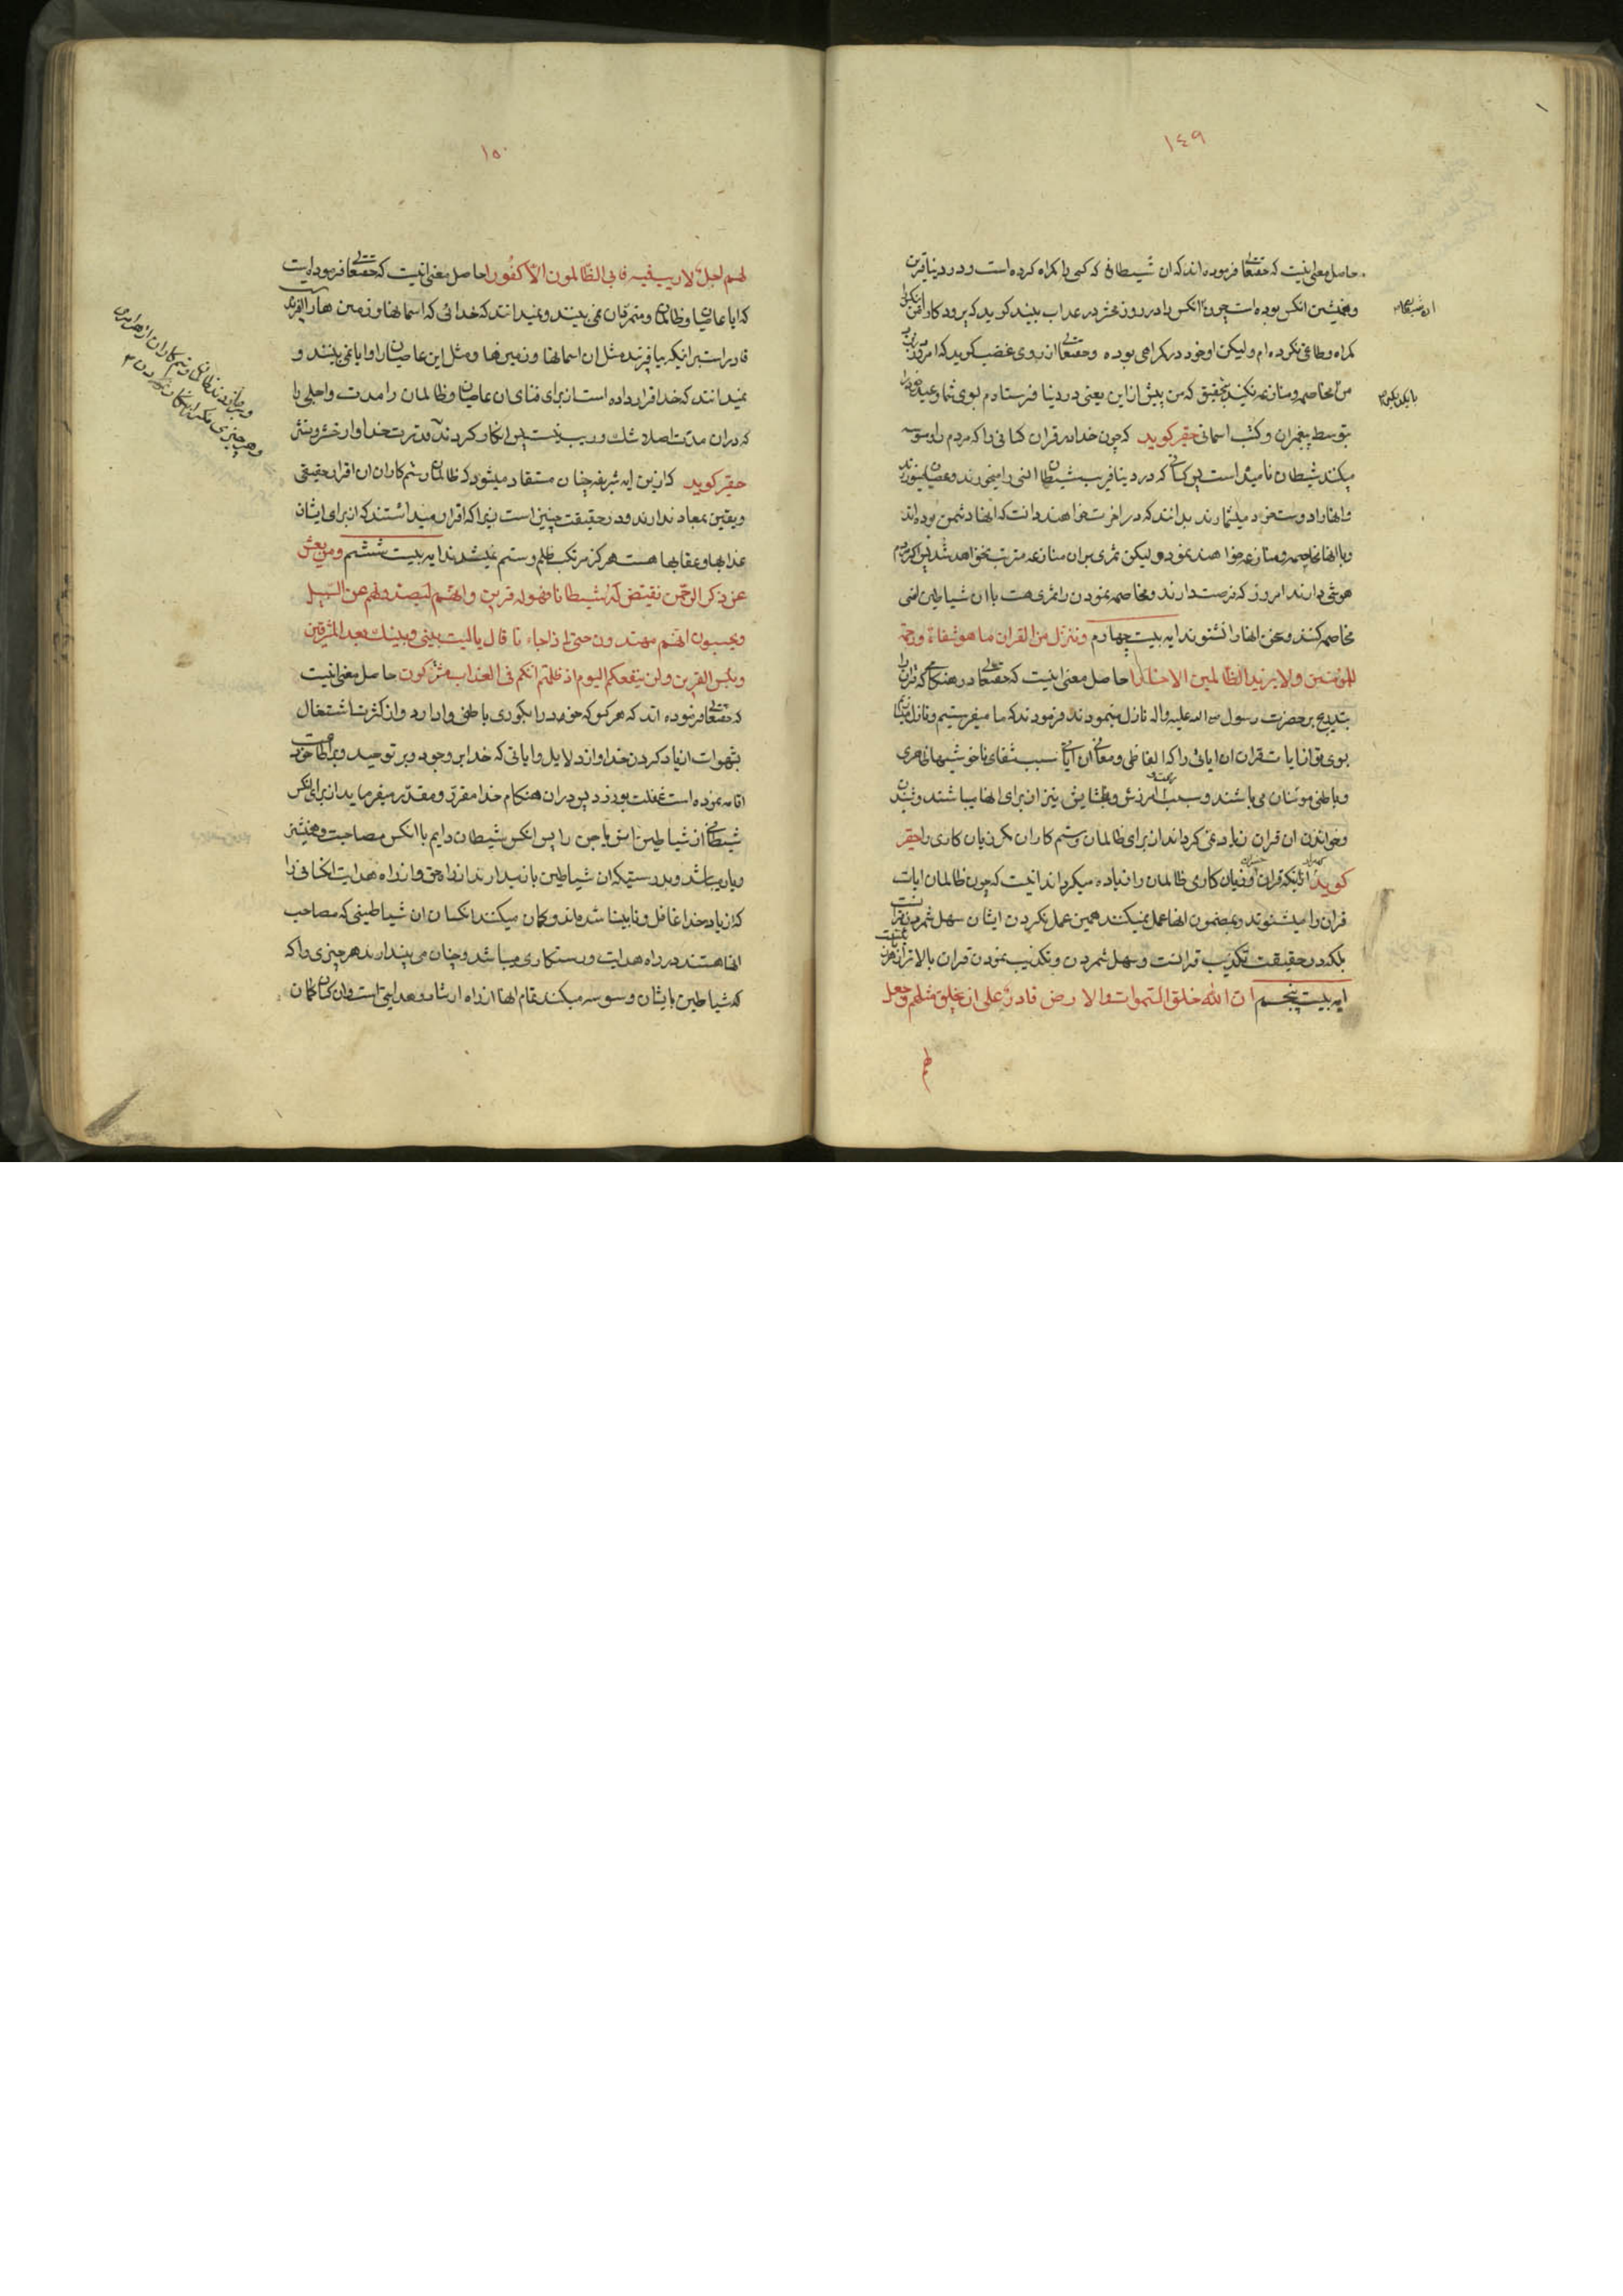 ١٤٩
حاصل معنی اینست که حقتعالی فرموده اند که ان شیطانی که کسی را کمراه کرده است و در دنیا قرین
و همنشین انکس بوده است چون انکس را در روز محشر در عذاب بیند کوید که پروردکارا من
کمراه و طاغی نکرده ام ولیکن او خود در کمراهی بوده و حقتعالی از روی غضب کوید که امروز
من مخاصمه و منازعه نکنید بتحقیق که من پیش ازاین یعنی در دنیا فرستادم بسوی شما وعید
بتوسط پیغمبران و کتب اسمانی حقیر کوید که چون خدا در قران کسانی را که مردم را وسوسه
میکنند شیطان نامیده است پس کسانی که در دنیا فریب شیطان انسی را میخورند و
و انها را دوست خود میشمارند بدانند که در اخرت خواهند دانست که انها دشمن بوده اند
و با انها مخاصمه و منازعه خواهند نمود ولیکن ثمری بران منازعه مترتب نخواهد شد پس اکر مردم
هوشی دارند امروز که فرصت دارند و مخاصمه نمودن را ثمری هست با ان شیاطین انسی
مخاصمه کنند و سخن انها را نشنوند ایه بیست چهارم و ننزل من القران ما هو شفاء و رحمة
للمؤمنین و لا یزید الظالمین الا خسارا حاصل معنی اینست که حقتعالی در هنکامی که قران را
بتدریج بر حضرت رسول صلی الله علیه واله نازل مینمودند فرمودند که ما میفرستیم و نازل
بسوی تو از ایات قران ان ایاتی را که الفاظ و معانی ان ایات سبب شفای ناخوشیهای ظاهری
و باطنی مومنان می باشند و سبب امرزش و بخشایش نیز از برای انها میباشند و
و خواندن ان قران زیاده نمی کرداند از برای ظالمان و ستم کاران مکر زیان کاری را حقیر
کوید اینکه قران زیان کاری ظالمان را زیاده میکرداند اینست که چون ظالمان ایات
قران را میشنوند و بمضمون انها عمل نمیکنند همین عمل نکردن ایشان سهل شمردن
بلکه در حقیقت تکذیب قرانست و سهل شمردن و تکذیب نمودن قران بالاترین
ایه بیست پنجم ان الله خلق السموات والارض قادر علی ان یخلق مثلهم و جعل
لهم
١٥٠
لهم اجلا لا ریب فیه فابی الظالمون الا کفورا حاصل معنی اینست که حقتعالی فرموده است
که ایا عاصیان و ظالمان و متمردان نمی بینند و نمیدانند که خدائی که اسمانها و زمین ها را
قادر است بر اینکه بیافریند مثل ان اسمانها و زمین ها و مثل این عاصیان را و ایا نمی بینند و
نمیدانند که خدا قرار داده است از برای فنای ان عاصیان و ظالمان را مدت و اجلی را
که دران مدت اصلا شک و ریب نیست پس انکار کردند قدرت خدا و از حشر و نشر
حقیر کوید که ازین ایه شریفه چنان مستفاد میشود که ظالمان و ستم کاران ان اقرار حقیقی
و یقین بمعاد ندارند و در حقیقت چنین است زیرا که اقرار میداشتند که از برای ایشان
عذابها و عقابها هست هرکز مرتکب ظلم و ستم نمیشدند ایه بیست ششم و من یعش
عن ذکر الرحمن نقیض له شیطانا فهو له قرین و انهم لیصدونهم عن السبیل
و یحسبون انهم مهتدون حتی اذا جاءنا قال یا لیت بینی و بینک بعد المشرقین
و بئس القرین و لن ینفعکم الیوم اذ ظلمتم انکم فی العذاب مشترکون حاصل معنی اینست
که حقتعالی فرموده اند که هر کس که خود را بکوری باطنی وادارد و از کثرت اشتغال
بشهوات از یاد کردن خدا و از دلایل و ایاتی که خدا بر وجود و بر توحید
اقامه نموده است غفلت بورزد پس دران هنکام خدا مقرر و مقدر میفرماید از برای انکس
شیطانی از شیاطین انس یا جن را پس انکس شیطان دایم با انکس مصاحب و همنشین
و یار میباشد و بدرستیکه ان شیاطین باز میدارند از راه حق و از راه هدایت انکسانی را
که از یاد خدا غافل و نابینا شده اند و کمان میکنند انکسان ان شیاطینی که مصاحب
انها هستند در راه هدایت و رستکاری میباشند و چنان می پندارند هر چیزی را که
که شیاطین بایشان وسوسه میکنند تمام انها از راه ارشاد و هدایت است و ان کسان کمان